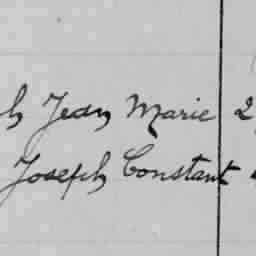 h Jean Marie 2
Joseph Constant